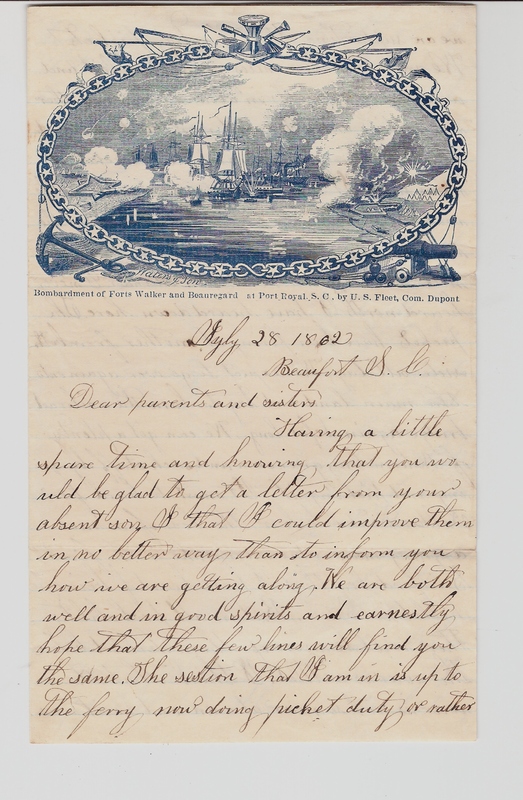 Waters & Son
Bombardment of Forts Walker and Beauregard at Port Royal, S. C., by U. S. Fleet, Com. Dupont
July 28 1862
Beaufort S. C.
Dear parents and sisters
Having a little
spare time and knowing that you wo
uld be glad to get a letter from your
absent son I that I could improve them
in no better way than to inform you
how we are getting along. We are both
well and in good spirits and earnestly
hope that these few lines will find you
the same. The section that I am in is up to
the ferry now doing picket duty or rather